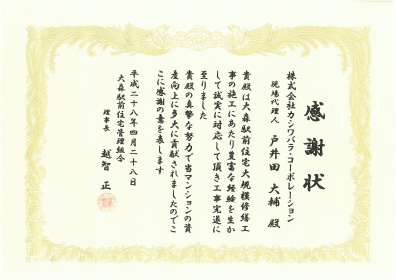 感謝状
株式会社カシワバラ・コーポレーション
現場代理人 戸井田 大輔 殿
貴殿は大森駅前住宅大規模修繕工
事の施工にあたり豊富な経験を生か
して誠実に対応して頂き工事完遂に
至りました
貴殿の真摯な努力で当マンションの資
産向上に多大に貢献されましたのでこ
こに感謝の意を表します
平成二十八年四月二十八日
大森駅前住宅管理組合
理事長 越智 正